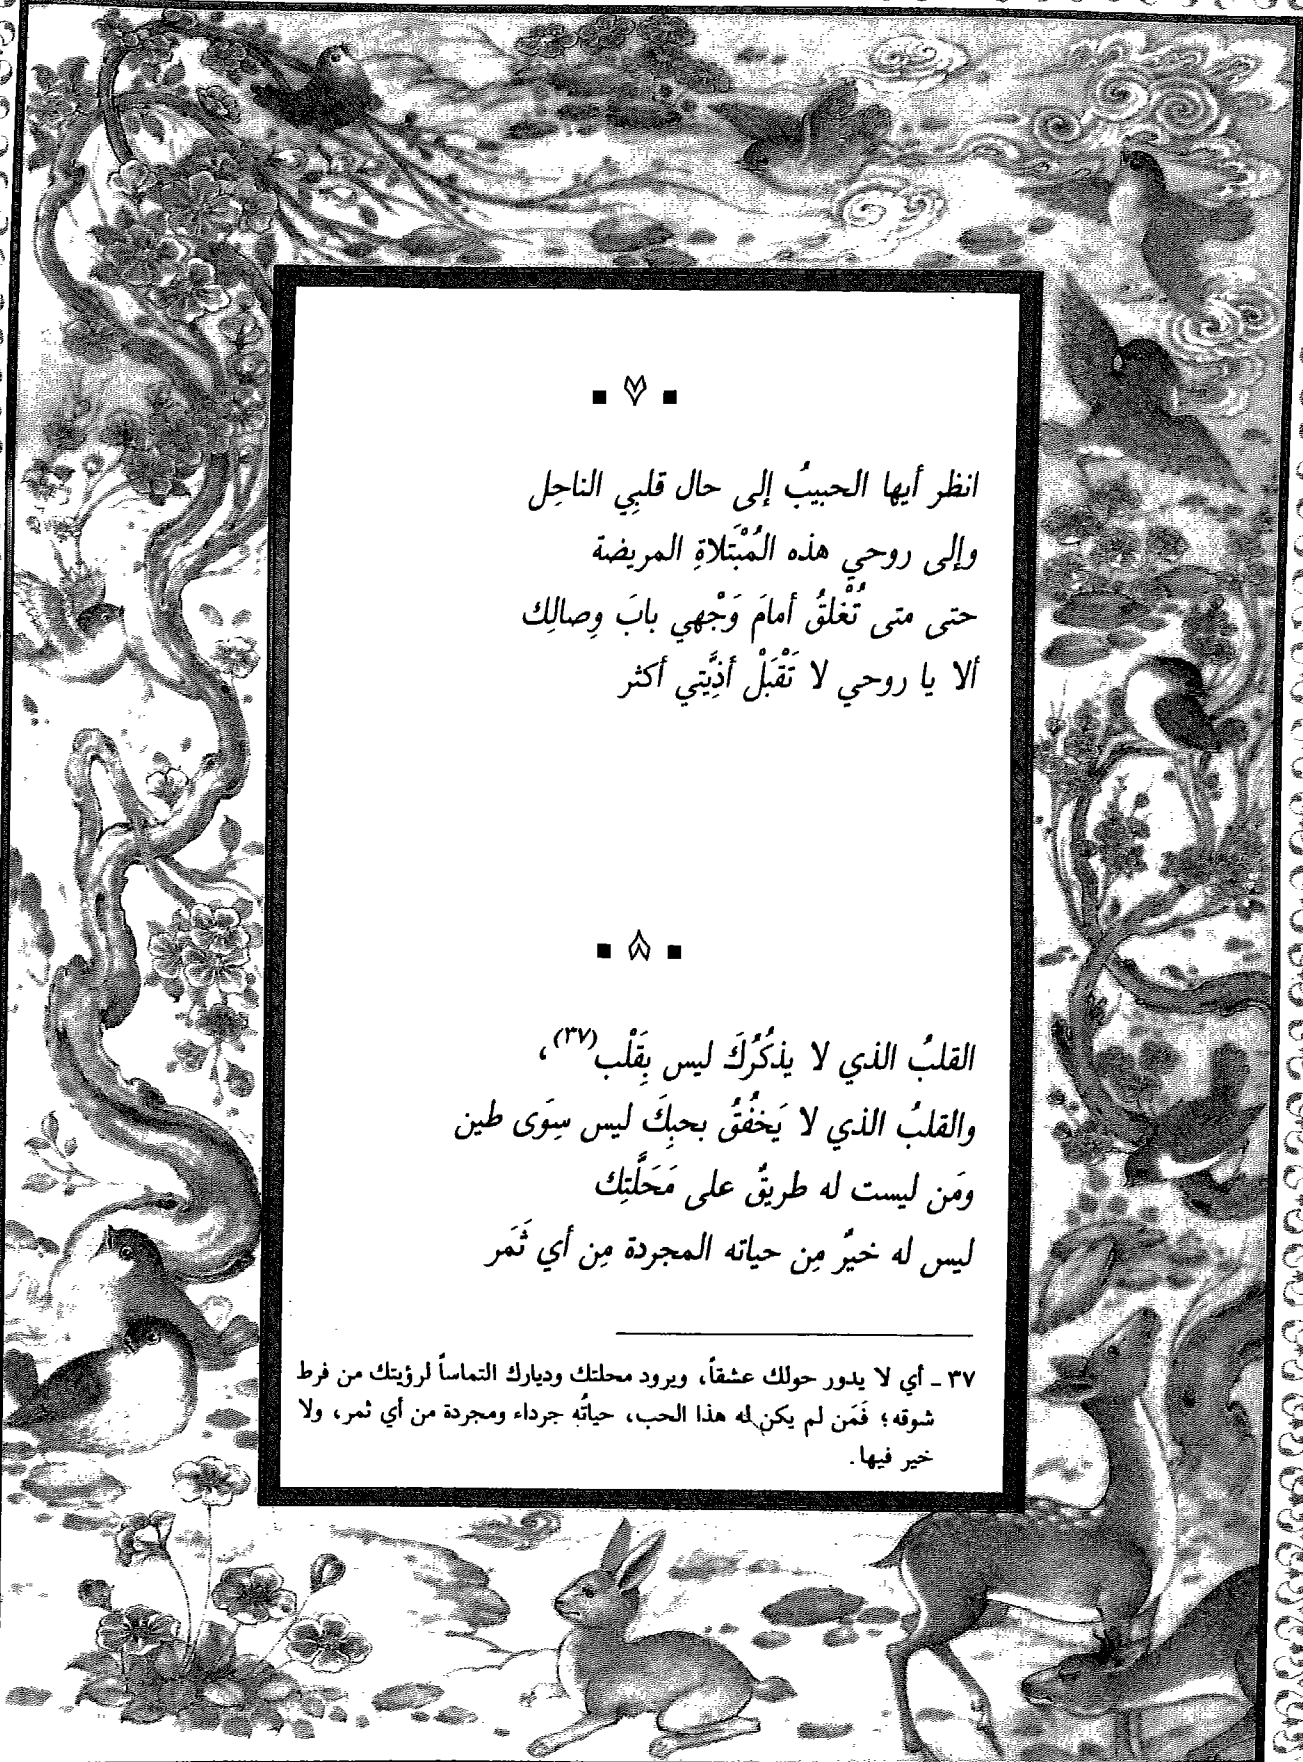 ▪ ٧ ▪
انظر أيها الحبيبُ إلى حال قلبِي الناحِل
وإلى روحي هذه المُبْتَلاةِ المريضة
حتى متى تُغْلقُ أمامَ وَجْهي بابَ وِصالِك
ألا يا روحي لا تَقْبَلْ أذِيَّتي أكثر
▪ ٨ ▪
القلبُ الذي لا يذكُرُكَ ليس بِقَلْب(٣٧)،
والقلبُ الذي لا يَخفُقُ بحبِكَ ليس سِوَى طين
ومَن ليست له طريقٌ على مَحَلَّتِك
ليس له خيرٌ مِن حياته المجردة مِن أي ثَمَر
٣٧ ـ أي لا يدور حولك عشقاً، ويرود محلتك وديارك التماساً لرؤيتك من فرط
شوقه؛ فَمَن لم يكن له هذا الحب، حياتُه جرداء ومجردة من أي ثمر، ولا
خير فيها.